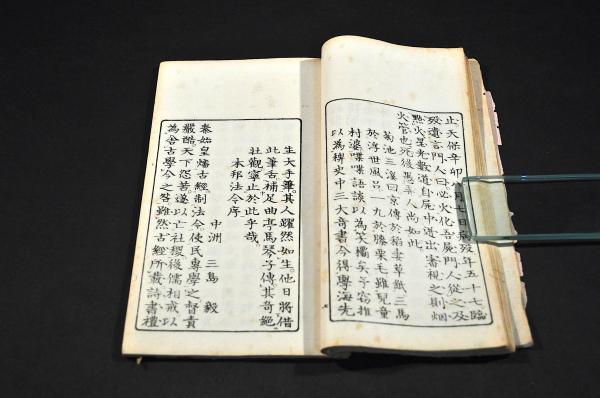 止天保辛卯 月七日病歿年五十七臨
歿遺言門人曰必火化吾屍門人從之及
點火星光數道自屍中迸出審視之則烟
火管也死後愚弄人尚如此
菊池三溪曰京傳於稻妻草紙三馬
於浮世風呂一九於膝栗毛雖兒童
村婆喋喋語談以為笑欛矣予竊推
以為稗史中三大奇書今得學海先
生大手筆其人躍然如生他日將借
此筆舌補足曲亭馬琴子傳其奇絕
壯觀寧止於此乎哉
本邦法令序
中洲 三島 毅
秦始皇燔古經制法令使民專學之督責
嚴酷天下怨苦遂以亡社稷後儒相戒以
為舍古學今之咎雖然古經所載詩書禮